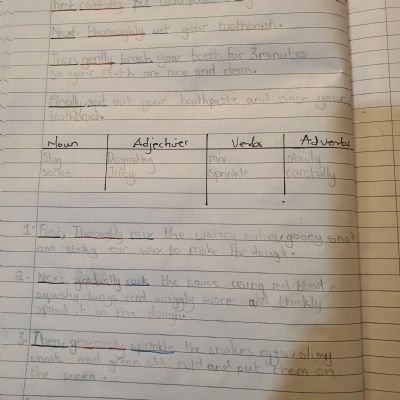 First carefully, put toothpaste
Next, thoroughly wet your toothbrush.
Then, gently brush your teeth for 3 minutes
so your teeth are nice and clean.
Finally, spit out your toothpaste and rinse your
toothbrush.
Noun Adjectives Verbs Adverbs
Slug Disgusting mix slowly
Juicy sprinkle carefully
1. First, Thoroughly mix the watery saliva, gooey snot
and sticky ear wax to make the dough.
2. Next, gradually cook the sauce using red blood,
squishy lungs and wriggly worm and thickly
spread it on the dough.
3. Then, generously sprinkle the snakes eggs, slimy
snails and green old mold and put them on
the pizza.